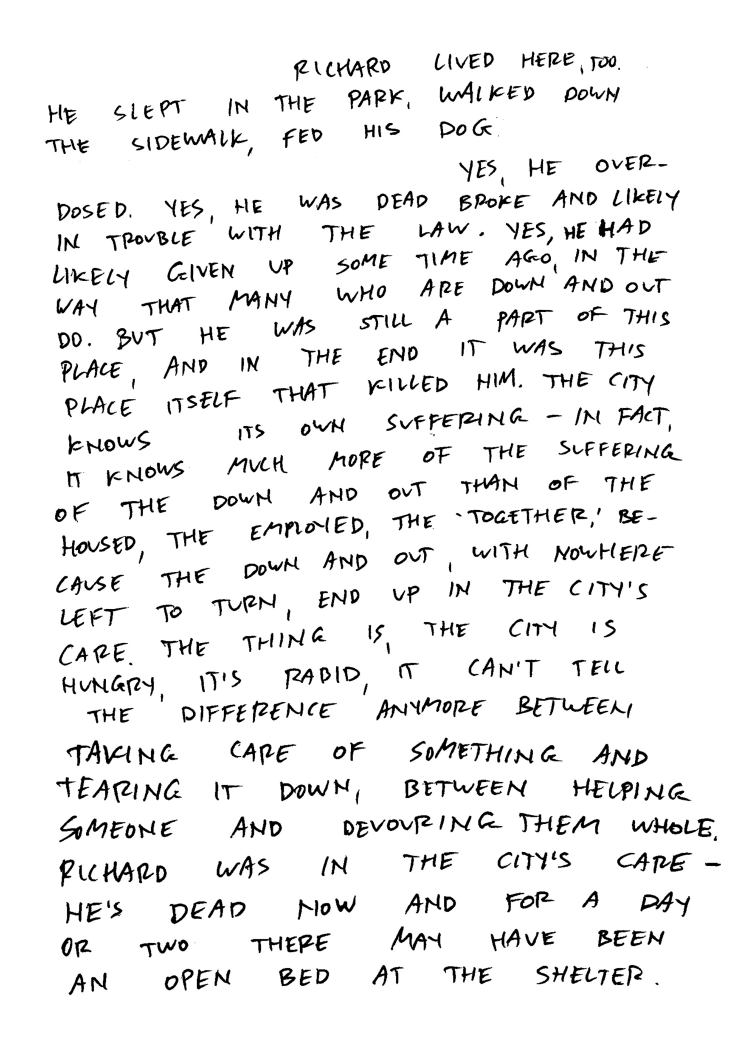 RICHARD LIVED HERE, TOO.
HE SLEPT IN THE PARK, WALKED DOWN
THE SIDEWALK, FED HIS DOG.
YES, HE OVER-
DOSED. YES, HE WAS DEAD BROKE AND LIKELY
IN TROUBLE WITH THE LAW. YES, HE HAD
LIKELY GIVEN UP SOME TIME AGO, IN THE
WAY THAT MANY WHO ARE DOWN AND OUT
DO. BUT HE WAS STILL A PART OF THIS
PLACE, AND IN THE END IT WAS THIS
PLACE ITSELF THAT KILLED HIM. THE CITY
KNOWS ITS OWN SUFFERING – IN FACT,
IT KNOWS MUCH MORE OF THE SUFFERING
OF THE DOWN AND OUT THAN OF THE
HOUSED, THE EMPLOYED, THE 'TOGETHER,' BE-
CAUSE THE DOWN AND OUT, WITH NOWHERE
LEFT TO TURN, END UP IN THE CITY'S
CARE. THE THING IS, THE CITY IS
HUNGRY, IT'S RABID, IT CAN'T TELL
THE DIFFERENCE ANYMORE BETWEEN
TAKING CARE OF SOMETHING AND
TEARING IT DOWN, BETWEEN HELPING
SOMEONE AND DEVOURING THEM WHOLE.
RICHARD WAS IN THE CITY'S CARE –
HE'S DEAD NOW AND FOR A DAY
OR TWO THERE MAY HAVE BEEN
AN OPEN BED AT THE SHELTER.